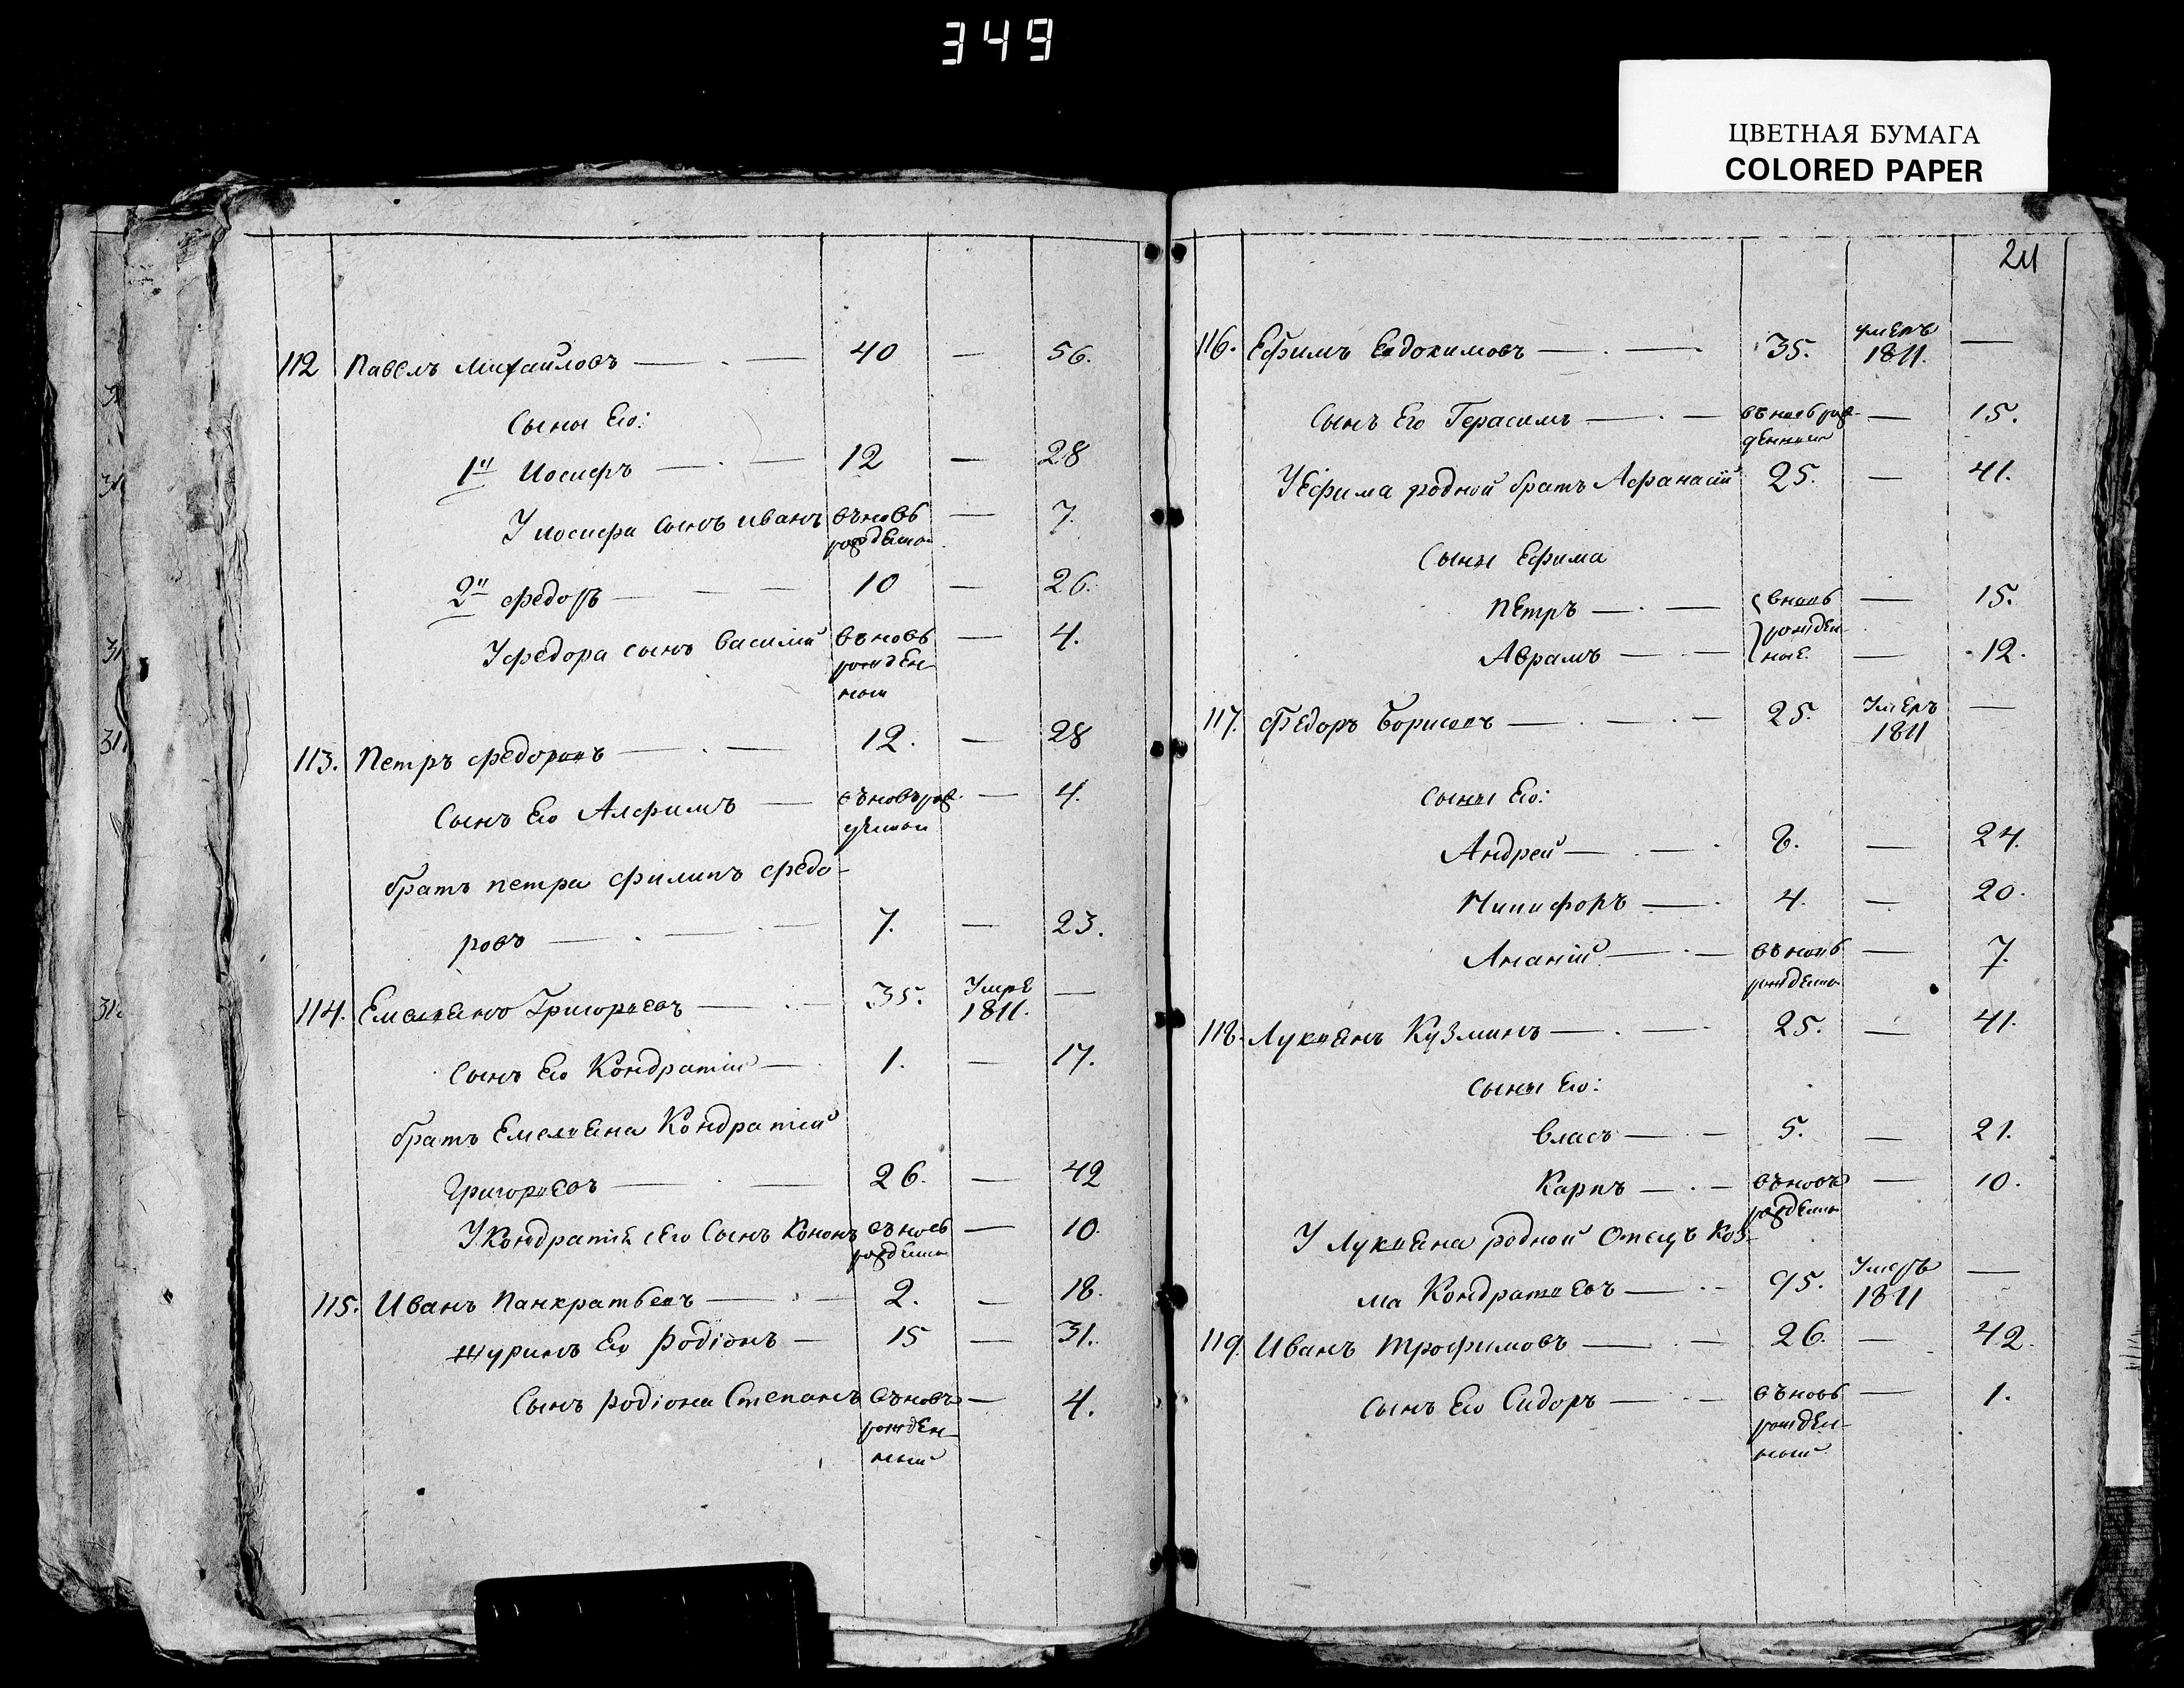 349
ЦВЕТНАЯ БУМАГА
COLORED PAPER
112 Павелъ Михайловъ — 40 — 56.
Сыны Его:
1й Иосифъ — 12 — 28
У иосифа сынъ иванъ въновь — 7.
рожденной
2й Федоръ — 10 — 26.
У федора сынъ василий въновь — 4.
рожден-
ный
113. Петръ федоровъ — 12. — 28
Сынъ Его Алфимъ — въновь рож- — 4.
денный
братъ петра филипъ федо-
ровъ — 7. — 23.
114. Емелиянъ Григориевъ — 35. Умре —
1811.
Сынъ Его Кондратий — 1. — 17.
братъ Емелияна Кондратий
Григориевъ — 26. — 42
У Кондратия Его Сынъ Кононъ вьновь — 10.
рожденной
115. Иванъ Панкратьевъ — 2. — 18.
шуринъ Его Родіонъ — 15 — 31.
Сынъ родіона Степанъ вьновь — 4.
рожден-
ный
211
116. Ефимъ Евдокимовъ — 35. умеръ —
1811.
Сынъ Его Герасимъ — вьновь рож- — 15.
денный
У Ефима родной братъ Афанасий 25. — 41.
Сыны Ефима
Петръ — вновь — 15.
рожден-
Аврамъ — ные. — 12.
117. Федоръ Борисовъ — 25. Умеръ —
1811
Сыны Его:
Андрей — 8. — 24.
Никифоръ — 4. — 20.
Ананий — вьновь — 7.
рожденной
118. Лукиянъ Кузминъ — 25. — 41.
Сыны Его:
Власъ — 5. — 21.
Карпъ — вьновь — 10.
рожденной
У Лукияна родной Отецъ Коз-
ма Кондратиевъ — 95. Умеръ —
1811
119. Иванъ Трофимовъ — 26. — 42.
Сынъ Его Сидоръ — вьновь — 1.
рожден-
ный